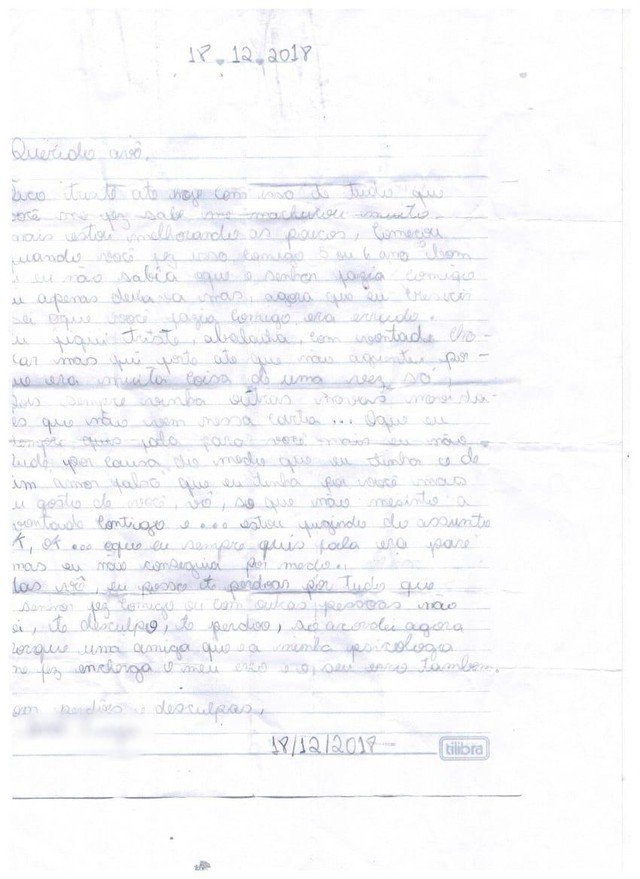 18.12.2018
Querido avô,
fico triste ate hoje com isso de tudo que
você me fez sabe me machucou muito
mais estou melhorando as poucos, começou
quando você fez isso comigo 5 ou 6 ano Bom
eu não sabia oque o senhor fazia comigo
u apenas deixava mas, agora que eu cresci
sei oque você fazia comigo era errado.
u fiquei triste, abalada, com vontade cho-
rar mas fui forte ate que não aguentei por-
ue era muita coisa de uma vez só,
sempre vinha outras
es que não vem nessa carta... Oque eu
quis fala para você mais eu não
tude por causa do medo que eu tinha e de
um amor falso que eu tinha por você mais
u gosto de você, vô, só que não mesinto a
vontade contigo e... estou fugindo do assunto
K, ok... oque eu sempre quis fala era pare
mas eu não conseguia por medo..
Mas vô, eu posso te perdoar por tudo que
senhor fez comigo ou com outras pessoas não
ei, te desculpo, te perdoo, só acordei agora
orque uma amiga que é a minha psicologa
me fez enchergá o meu erro e o seu erro tambem.
om perdões e desculpas,
18/12/2018
tilibra